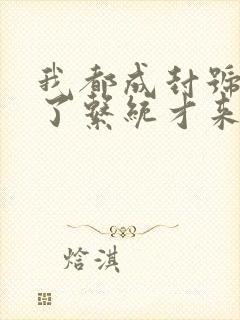 我都成封號
了繫統才来
焓淇